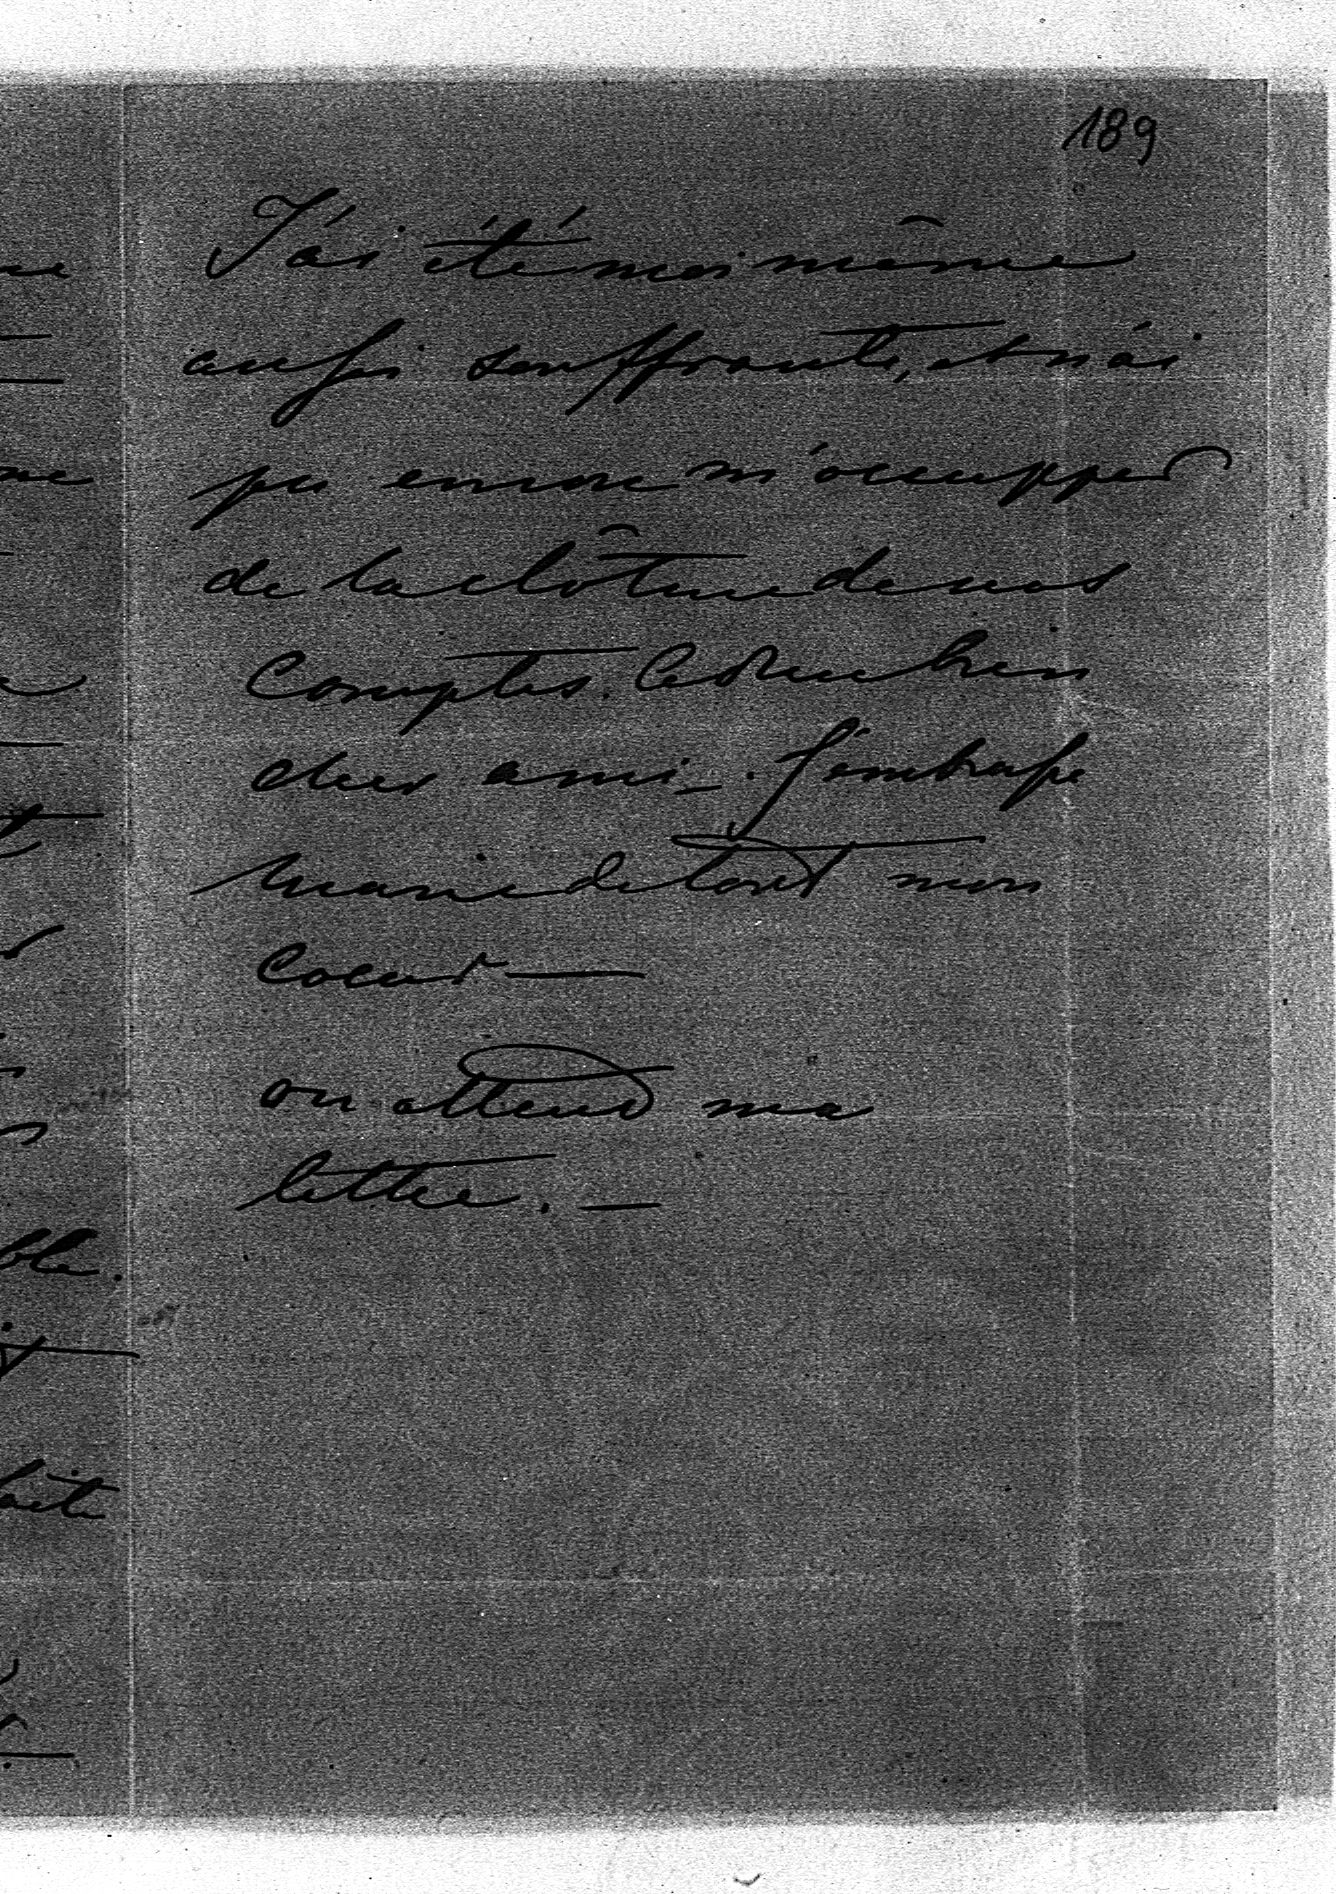 189
J'ai été moi même
aussi souffrante, et n'ai
pu encore m'occupper
de la clôture de nos
Comptes. bien
cher ami_. J'embrasse
Marie de tout mon
Coeur —
on attend ma
lettre. —